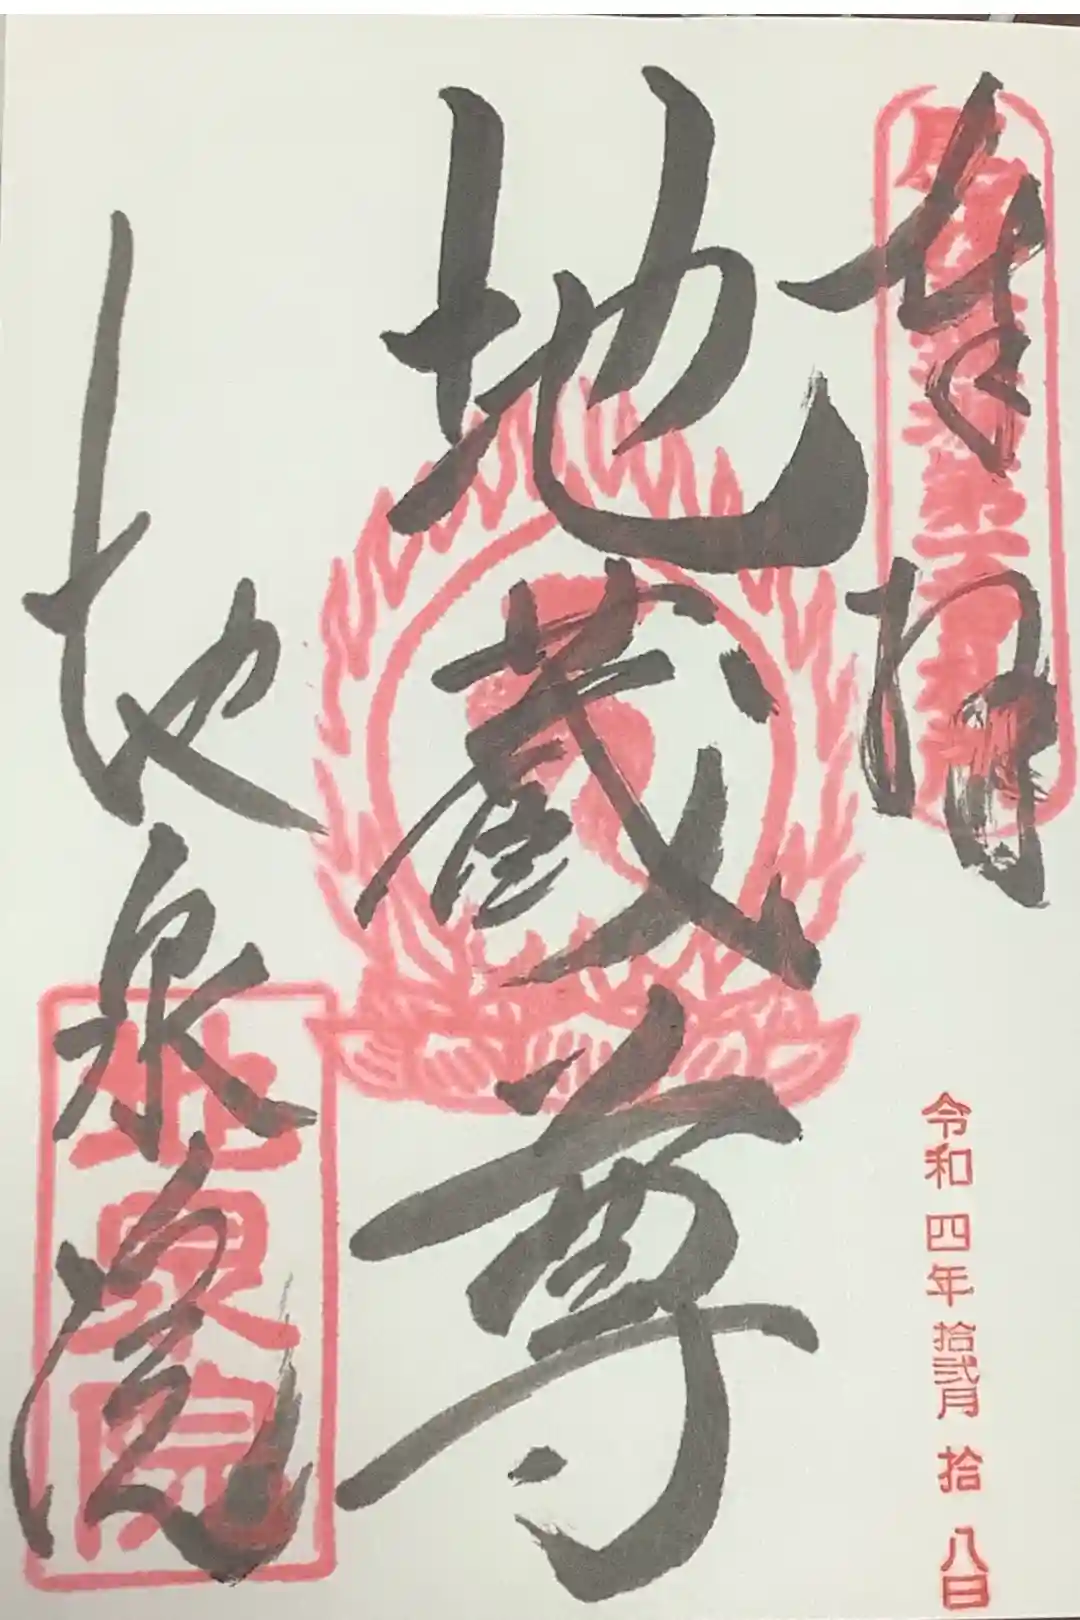 奉拝
令和四年拾弐月拾八日
地蔵尊
地泉院
地泉院